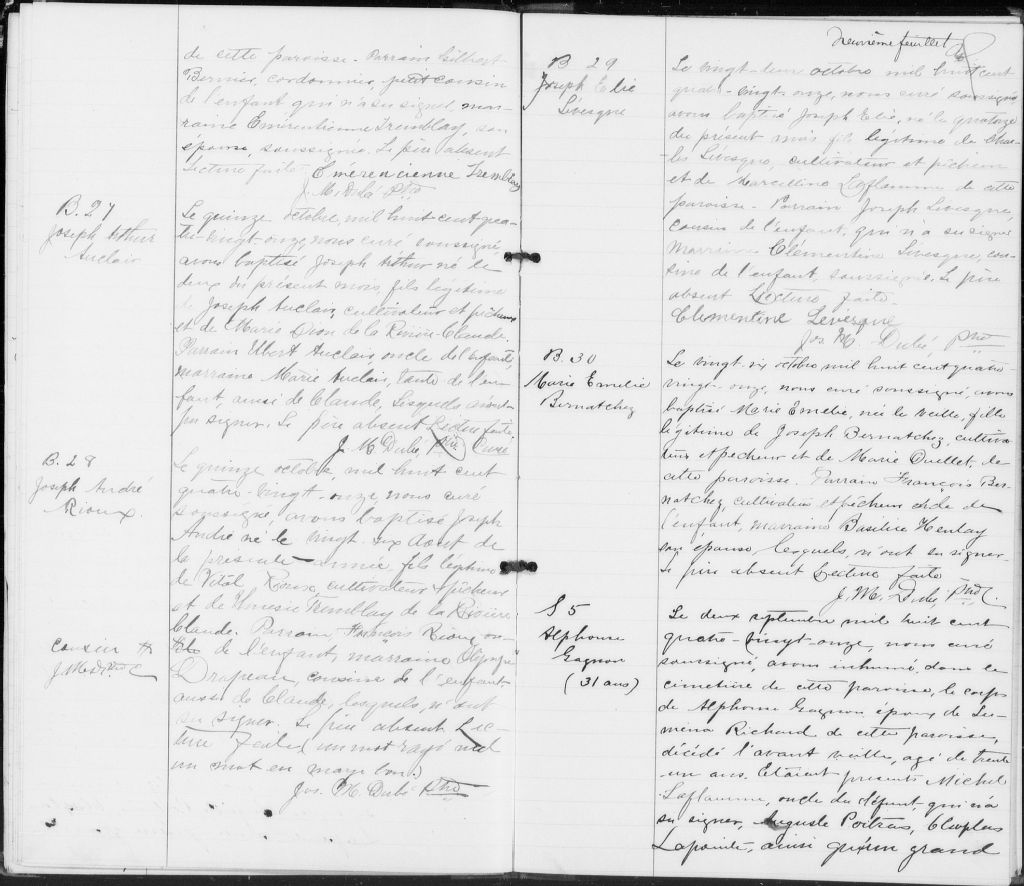 de cette paroisse. Parrain Gilbert
Bernier, cordonnier, petit cousin
de l'enfant qui n'a su signer, mar-
raine Emérentienne Tremblay, son
épouse, soussignée. Le père absent
Lecture faite. Emérencienne Tremblay
J. M. Dubé Ptre
B. 27
Joseph Arthur
Auclair
Le quinze octobre, mil huit cent qua-
tre-vingt-onze, nous curé soussigné
avons baptisé Joseph Arthur né le
deux du présent mois, fils légitime
de Joseph Auclair, cultivateur et pêcheur
et de Marie Dion de la Rivière-Claude.
Parrain Elbert Auclair, oncle de l'enfant,
marraine Marie Auclair, tante de l'en-
fant, aussi de Claude, lesquels n'ont
pu signer. Le père absent Lecture faite.
J. M. Dubé, Ptre Curé
B. 28
Joseph André
Rioux.
Le quinze octobre, mil huit cent
quatre-vingt-onze, nous curé
soussigné, avons baptisé Joseph
André né le vingt-six Aout de
la présente année, fils légitime
de Vital Rioux, cultivateur & pêcheur
et de Tremblay de la Rivière
Claude. Parrain, François Rioux
de l'enfant, marraine Olympe
Drapeau, cousine de l'enfant,
aussi de Claude, lesquels n'ont
su signer. Le père absent Lec-
ture faite (un mot rayé nul
un mot en marge bon.)
Jos. M. Dubé Ptre
Cousin #
J. M. D. Ptre C
Neuvième feuillet
B 29
Joseph Elie
Lévesque
Le vingt-deux octobre mil huit cent
quatre-vingt-onze, nous curé soussigné
avons baptisé Joseph Elie, né le quatorze
du présent mois fils légitime de Char-
les Lévesque, cultivateur et pêcheur
et de Marcelline Laflamme de cette
paroisse. Parrain Joseph Levesque,
cousin de l'enfant, qui n'a su signer
marraine Clémentine Levesque, cou-
sine de l'enfant, soussignée. Le père
absent Lecture faite.
Clementine Levesque
Jos. M. Dubé Ptre
B. 30
Marie Emelie
Bernatchez
Le vingt-six octobre mil huit cent quatre-
vingt-onze, nous curé soussigné, avons
baptisé Marie Emelie, née la veille, fille
légitime de Joseph Bernatchez, cultiva-
teur et pêcheur et de Marie Ouellet, de
cette paroisse. Parrain François Ber-
natchez, cultivateur et pêcheur oncle de
l'enfant, marraine Basilice Henley
son épouse, lesquels, n'ont su signer
Le père absent Lecture faite
J. M. Dubé, Ptre C.
S 5
Alphonse
Gagnon
(31 ans)
Le deux septembre mil huit cent
quatre-vingt-onze, nous curé
soussigné, avons inhumé dans le
cimetière de cette paroisse, le corps
de Alphonse Gagnon époux de Lu-
mena Richard de cette paroisse,
décédé l'avant veille, agé de trente
-un ans. Etaient presents Michel
Laflamme, oncle du défunt, qui n'a
su signer, Auguste Poitras, Cléophas
Lapointe, ainsi qu'un grand